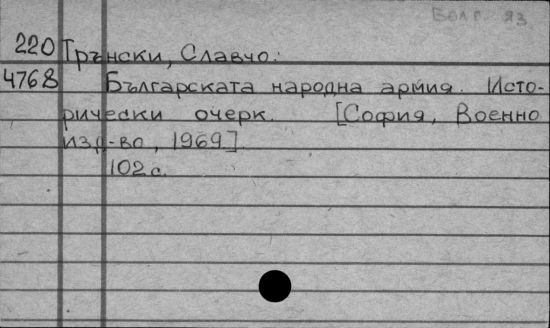 Болг. яз
220 Трънски, Славчо.
4768 Българската народна армия. Исто-
рически очерк. [София, Военно
изд-во, 1969].
102 с.